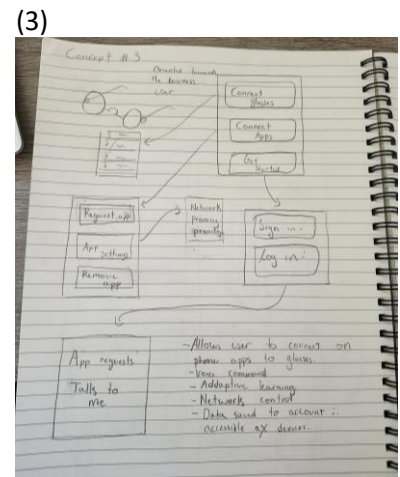 (3)
Concept #3
Oriented towards
the business
user
Connect
glasses
Connect
Apps
Get
Started
Request app
App
setting
Remove
app
Network
privacy
Sign in
Log in
App requests
Talks to
me
- Allows user to connect on
phone apps to glasses.
- Voice command
- Addaptive learning
- Network control
- Data saved to account
accessible devices.